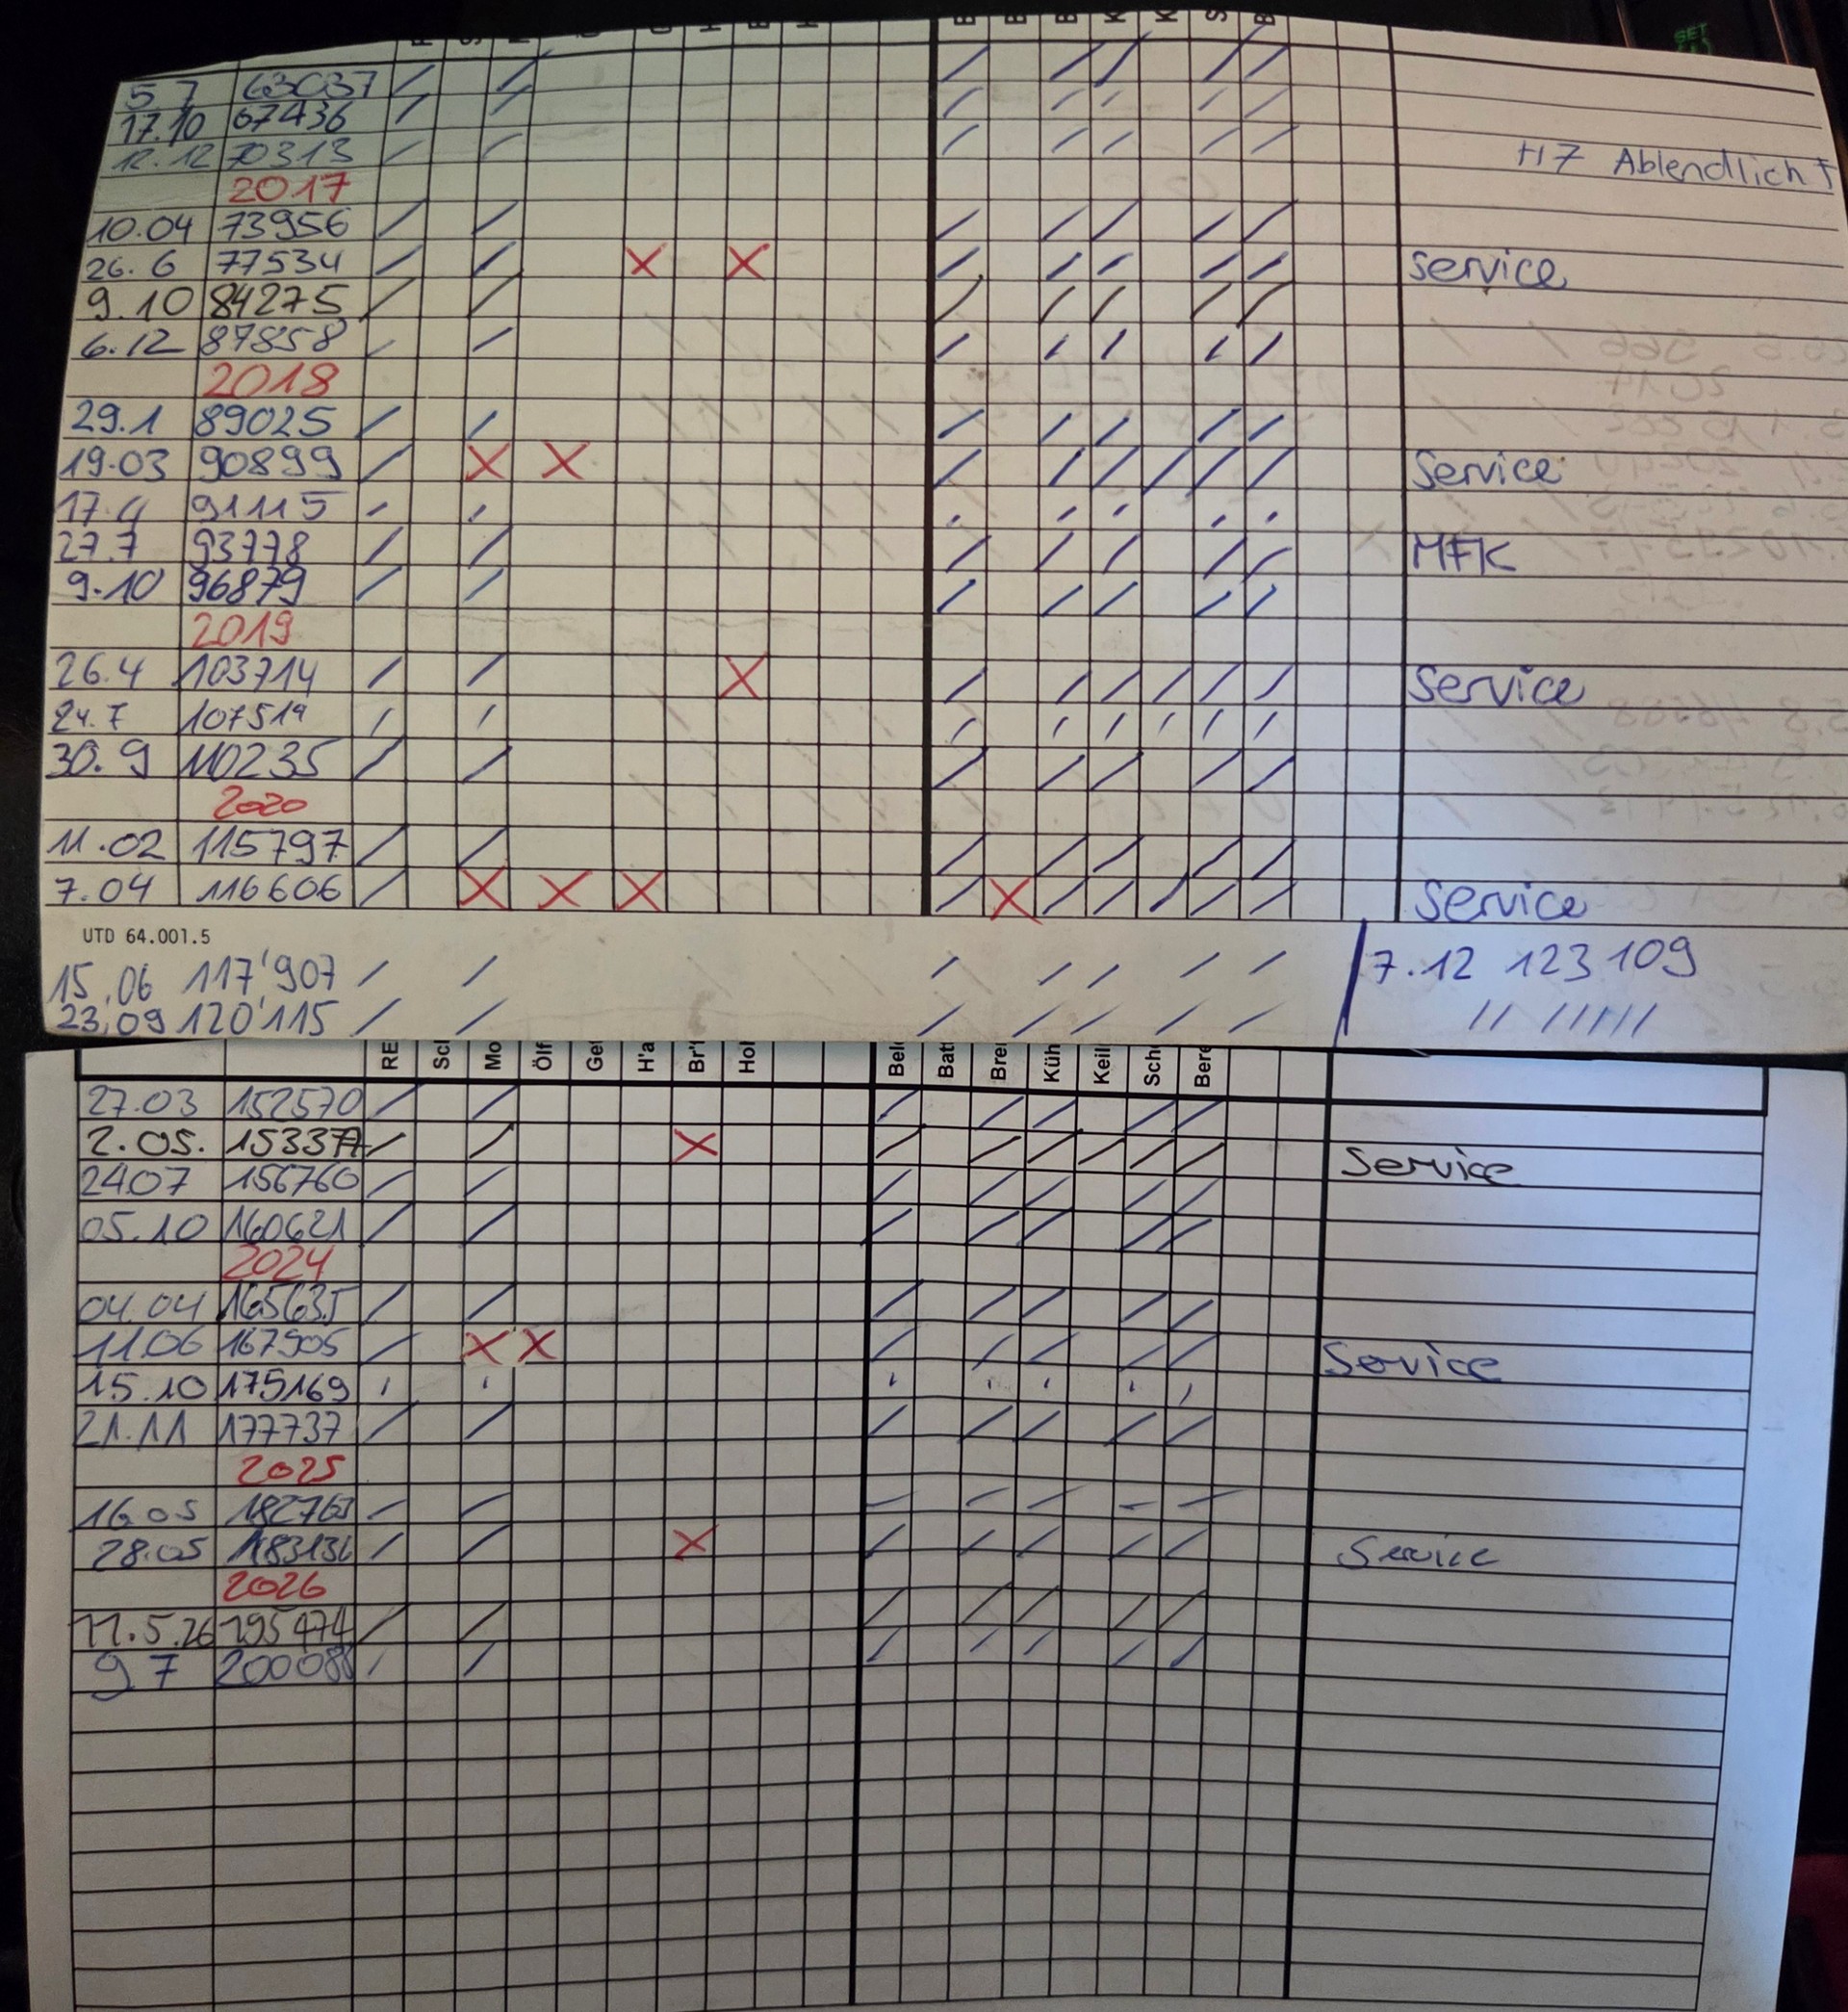 5 7 63037
17.10 67436
12.12 70313 H7 Ablendlicht
2017
10.04 73956
26.6 77534 Service
9.10 84275
6.12 87858
2018
29.1 89025
19.03 90899 Service
17.4 91115
27.7 93778 MFK
9.10 96879
2019
26.4 103714 Service
24.7 107519
30.9 110235
2020
11.02 115797
7.04 116606 Service
UTD 64.001.5
15.06 117'907 7.12 123109
23,09 120'115
RE Sch Mo Ölf Get H'a Br'f Hol Bel Batt Bre Küh Keil Sch Bere
27.03 152570
2.05. 15337 Service
24.07 156760
05.10 160621
2024
04.04 165635
11.06 167905 Service
15.10 175169
21.11 177737
2025
16.05 182763
28.05 183136 Service
2026
11.5.26 195474
9 7 200088